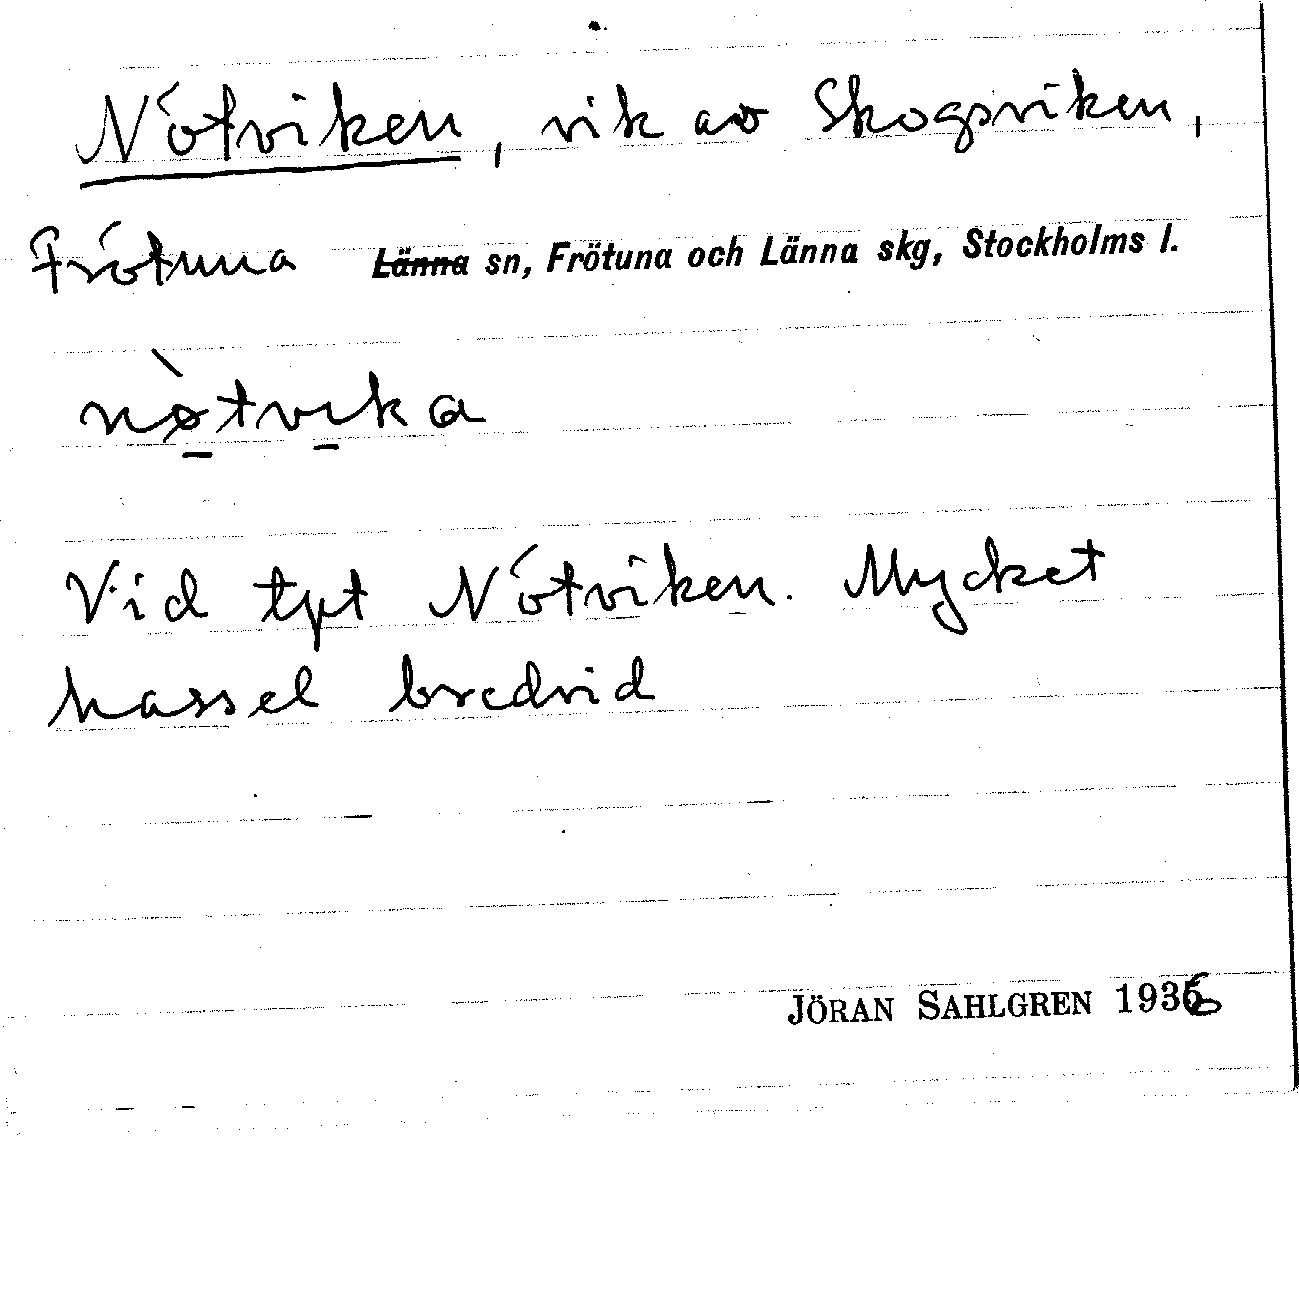 Nötviken, vik av Skogsviken,
Frötuna Länna sn, Frötuna och Länna skg, Stockholms l.
nø̀tvika
Vid tpt Nötviken. Mycket
hassel bredvid
JÖRAN SAHLGREN 1936